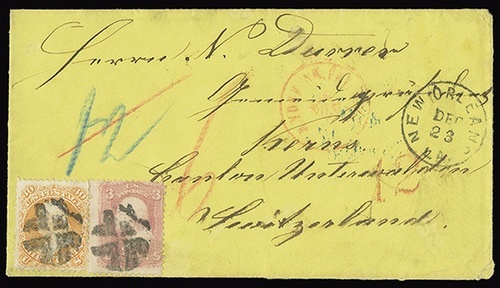 Herrn N. Durrer
Gemeindepräsident
Kerns
Canton Unterwalden
Switzerland.
NEW ORLEANS
DEC
23
12
30
3